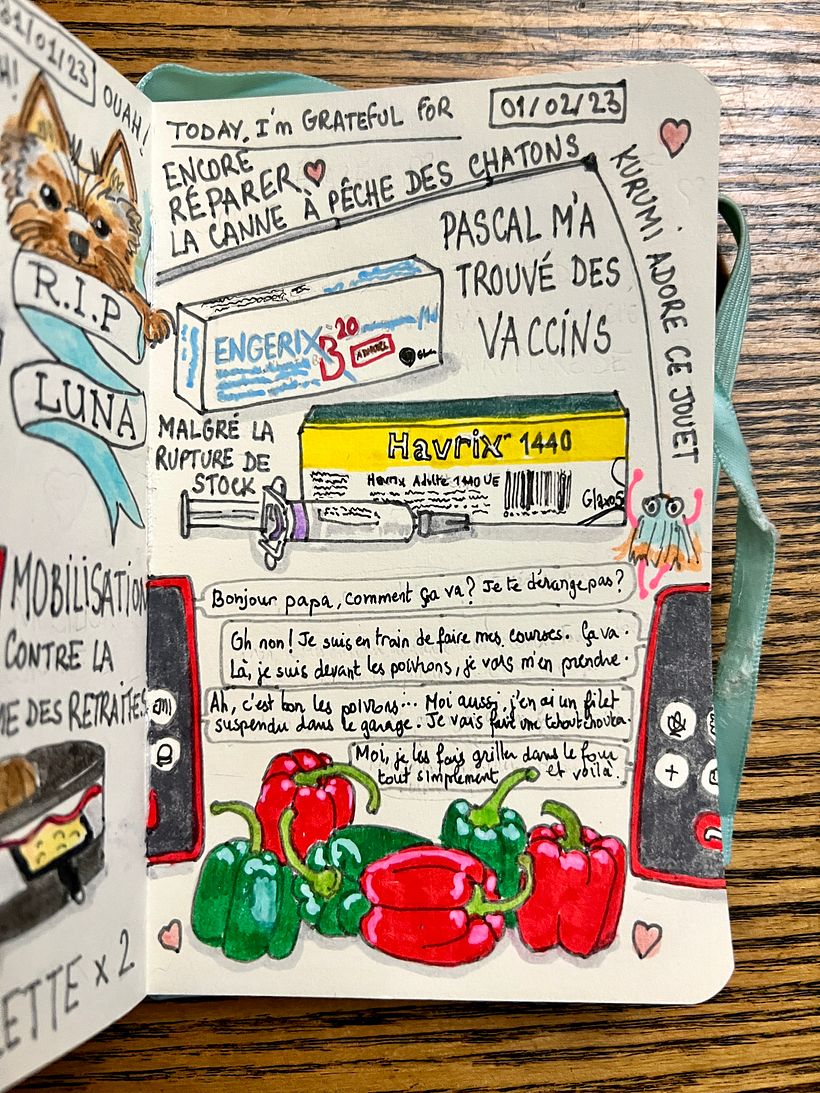 31/01/23
OUAH!
R.I.P
LUNA
MOBILISATION
CONTRE LA
ME DES RETRAITES
ETTE x 2
TODAY, I'm GRATEFUL FOR
01/02/23
ENCORE
RÉPARER
LA CANNE À PÊCHE DES CHATONS
KURUMI ADORE CE JOUET
PASCAL M'A
TROUVÉ DES
VACCINS
ENGERIX B 20
MALGRÉ LA
RUPTURE DE
STOCK
Havrix 1440
Havrix Adulte 1440 UE
GlaxoS
Bonjour papa, comment ça va? Je te dérange pas?
Oh non! Je suis en train de faire mes courses. Ça va.
Là, je suis devant les poivrons, je vais m'en prendre.
Ah, c'est bon les poivrons... Moi aussi, j'en ai un filet
suspendu dans le garage. Je vais faire une tchoutchouka.
Moi, je les fais griller dans le four
tout simplement et voilà.